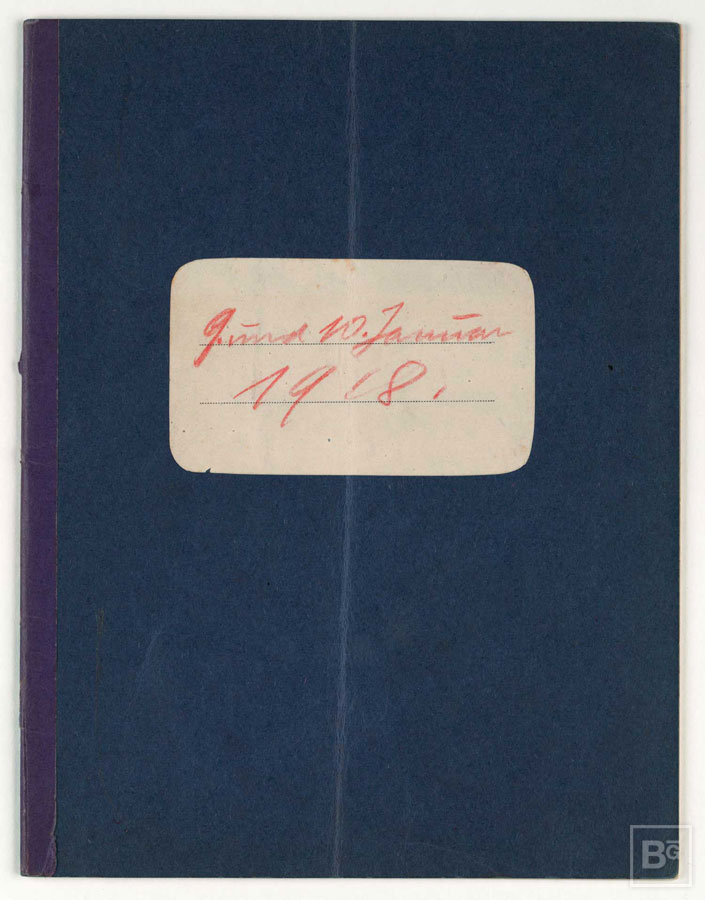 9. und 10. Januar
1918.
BG